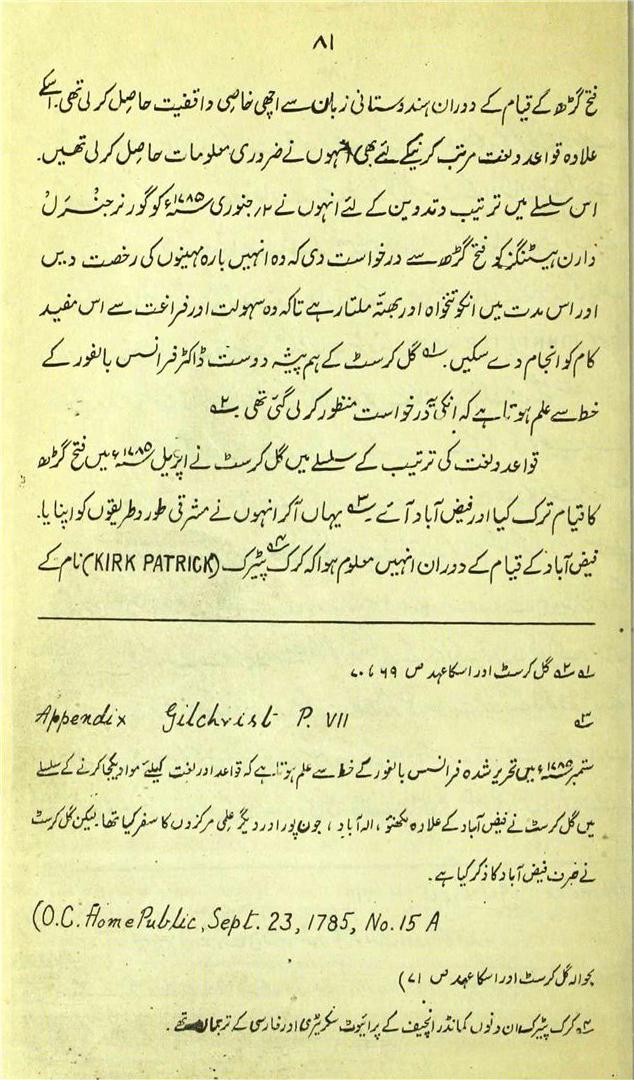 ۸۱
فتح گڑھ کے قیام کے دوران ہندوستانی زبان سے اچھی خاصی واقفیت حاصل کر لی تھی۔ اسکے
علاوہ قواعد ولغت مرتب کرنیکے لئے بھی انہوں نے ضروری معلومات حاصل کر لی تھیں۔
اس سلسلے میں ترتیب وتدوین کے لئے انہوں نے ۲؍ جنوری ۱۷۸۵ء کو گورنر جنرل
وارن ہیسٹنگز کو فتح گڑھ سے درخواست دی کہ وہ انہیں بارہ مہینوں کی رخصت دیں
اور اس مدت میں انکو تنخواہ اور بھتّہ ملتا رہے تاکہ وہ سہولت اور فراغت سے اس مفید
کام کو انجام دے سکیں۔ ۱ گل کرسٹ کے ہم پیشہ دوست ڈاکٹر فرانسس بالفور کے
خط سے علم ہوتا ہے کہ انکی درخواست منظور کر لی گئی تھی ۲
قواعد ولغت کی ترتیب کے سلسلے میں گل کرسٹ نے اپریل ۱۷۸۵ء میں فتح گڑھ
کا قیام ترک کیا اور فیض آباد آئے۔ ۳ یہاں آکر انہوں نے مشرقی طور وطریقوں کو اپنایا۔
فیض آباد کے قیام کے دوران انہیں معلوم ہوا کہ کرک پیٹرک ۴ (KIRK PATRICK) نام کے
۱ ۲ گل کرسٹ اور اسکا عہد ص ۶۹ تا ۷۰
۳ Appendix Gilchrist P. VII
ستمبر ۱۷۸۵ء میں تحریر شدہ فرانسس بالفور کے خط سے علم ہوتا ہے کہ قواعد اور لغت کیلئے مواد یکجا کرنے کے سلسلے
میں گل کرسٹ نے فیض آباد کے علاوہ لکھنؤ، الہ آباد، جون پور اور دیگر علمی مرکزوں کا سفر کیا تھا۔ لیکن گل کرسٹ
نے صرف فیض آباد کا ذکر کیا ہے۔
(O.C. Home Public, Sept. 23, 1785, No. 15 A
بحوالہ گل کرسٹ اور اسکا عہد ص ۷۱)
۴ کرک پیٹرک ان دنوں کمانڈر انچیف کے پرائیوٹ سکریٹری اور فارسی کے ترجمان تھے۔